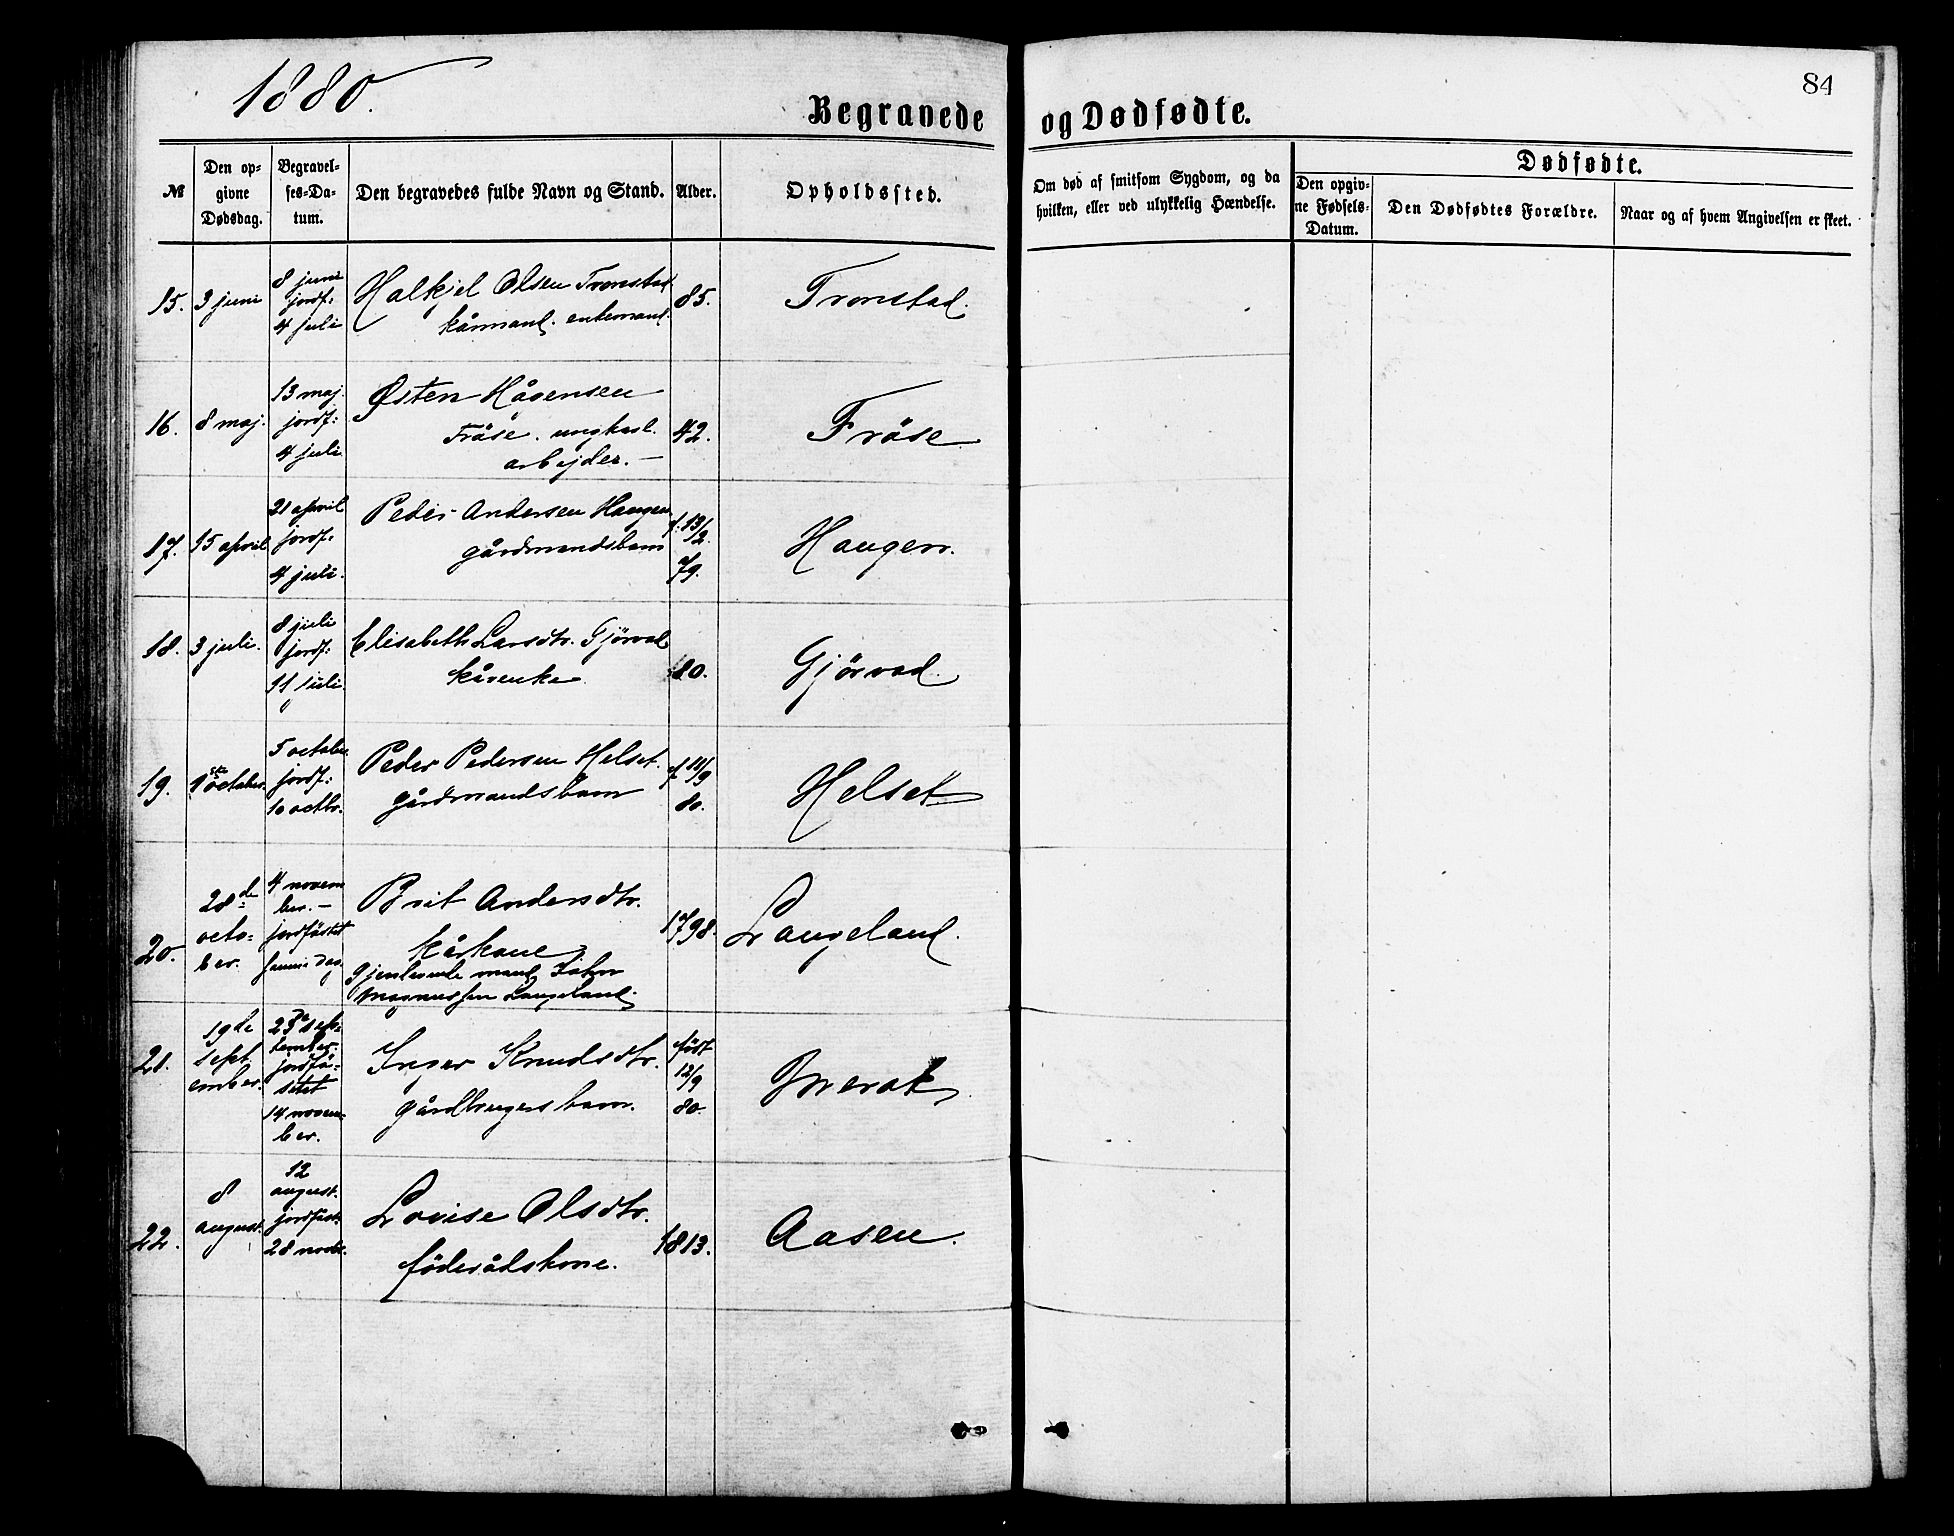 1880.
84
Begravede og Dødfødte.
№
Den opgivne Dødsdag.
Begravelses-Datum.
Den begravedes fulde Navn og Stand.
Alder.
Opholdssted.
Om død af smitsom Sygdom, og da hvilken, eller ved ulykkelig Hændelse.
Dødfødte.
Den opgivne Fødsels-Datum.
Den Dødfødtes Forældre.
Naar og af hvem Angivelsen er skeet.
15. 3 juni
8 juni
jordf:
4 juli
Halkjel Olsen Tronstad
kårmand. enkemand.
85.
Tronstad.
16. 8 maj.
13 maj.
jordf:
4 juli
Østen Hågensen
Fröse. ungkarl.
arbejder. —
42.
Fröse
17. 15 april
21 april
jordf:
4 juli.
Peder Andersen Haugen
gårdmandsbarn
f. 13/2
79.
Haugen.
18. 3 juli.
8 juli
jordf:
11 juli
Elisabeth Larsdtr. Gjörvad
kårenke
80.
Gjörvad.
19. 1ste october.
5 october
jordf:
10 octbr.
Peder Pedersen Helset.
gårdmandsbarn
f 11/9
80.
Helset
20.
28de
octo-
ber.
4 novem
ber. —
jordfästet
samme dag.
Brit Andersdtr.
kårkone
gjenlevende mand John
Magnussen Langeland.
1798.
Langeland.
21.
19de
sept
ember.
23de sep-
tember.
jordfä-
stet
14 novem-
ber.
Inger Knudsdtr.
gårdbrugers barn.
födt
12/9
80.
Merok
22.
8
august.
12
august.
jordfäst.
28 novbr.
Lovise Olsdtr.
föderådskone.
1813.
Aasen.